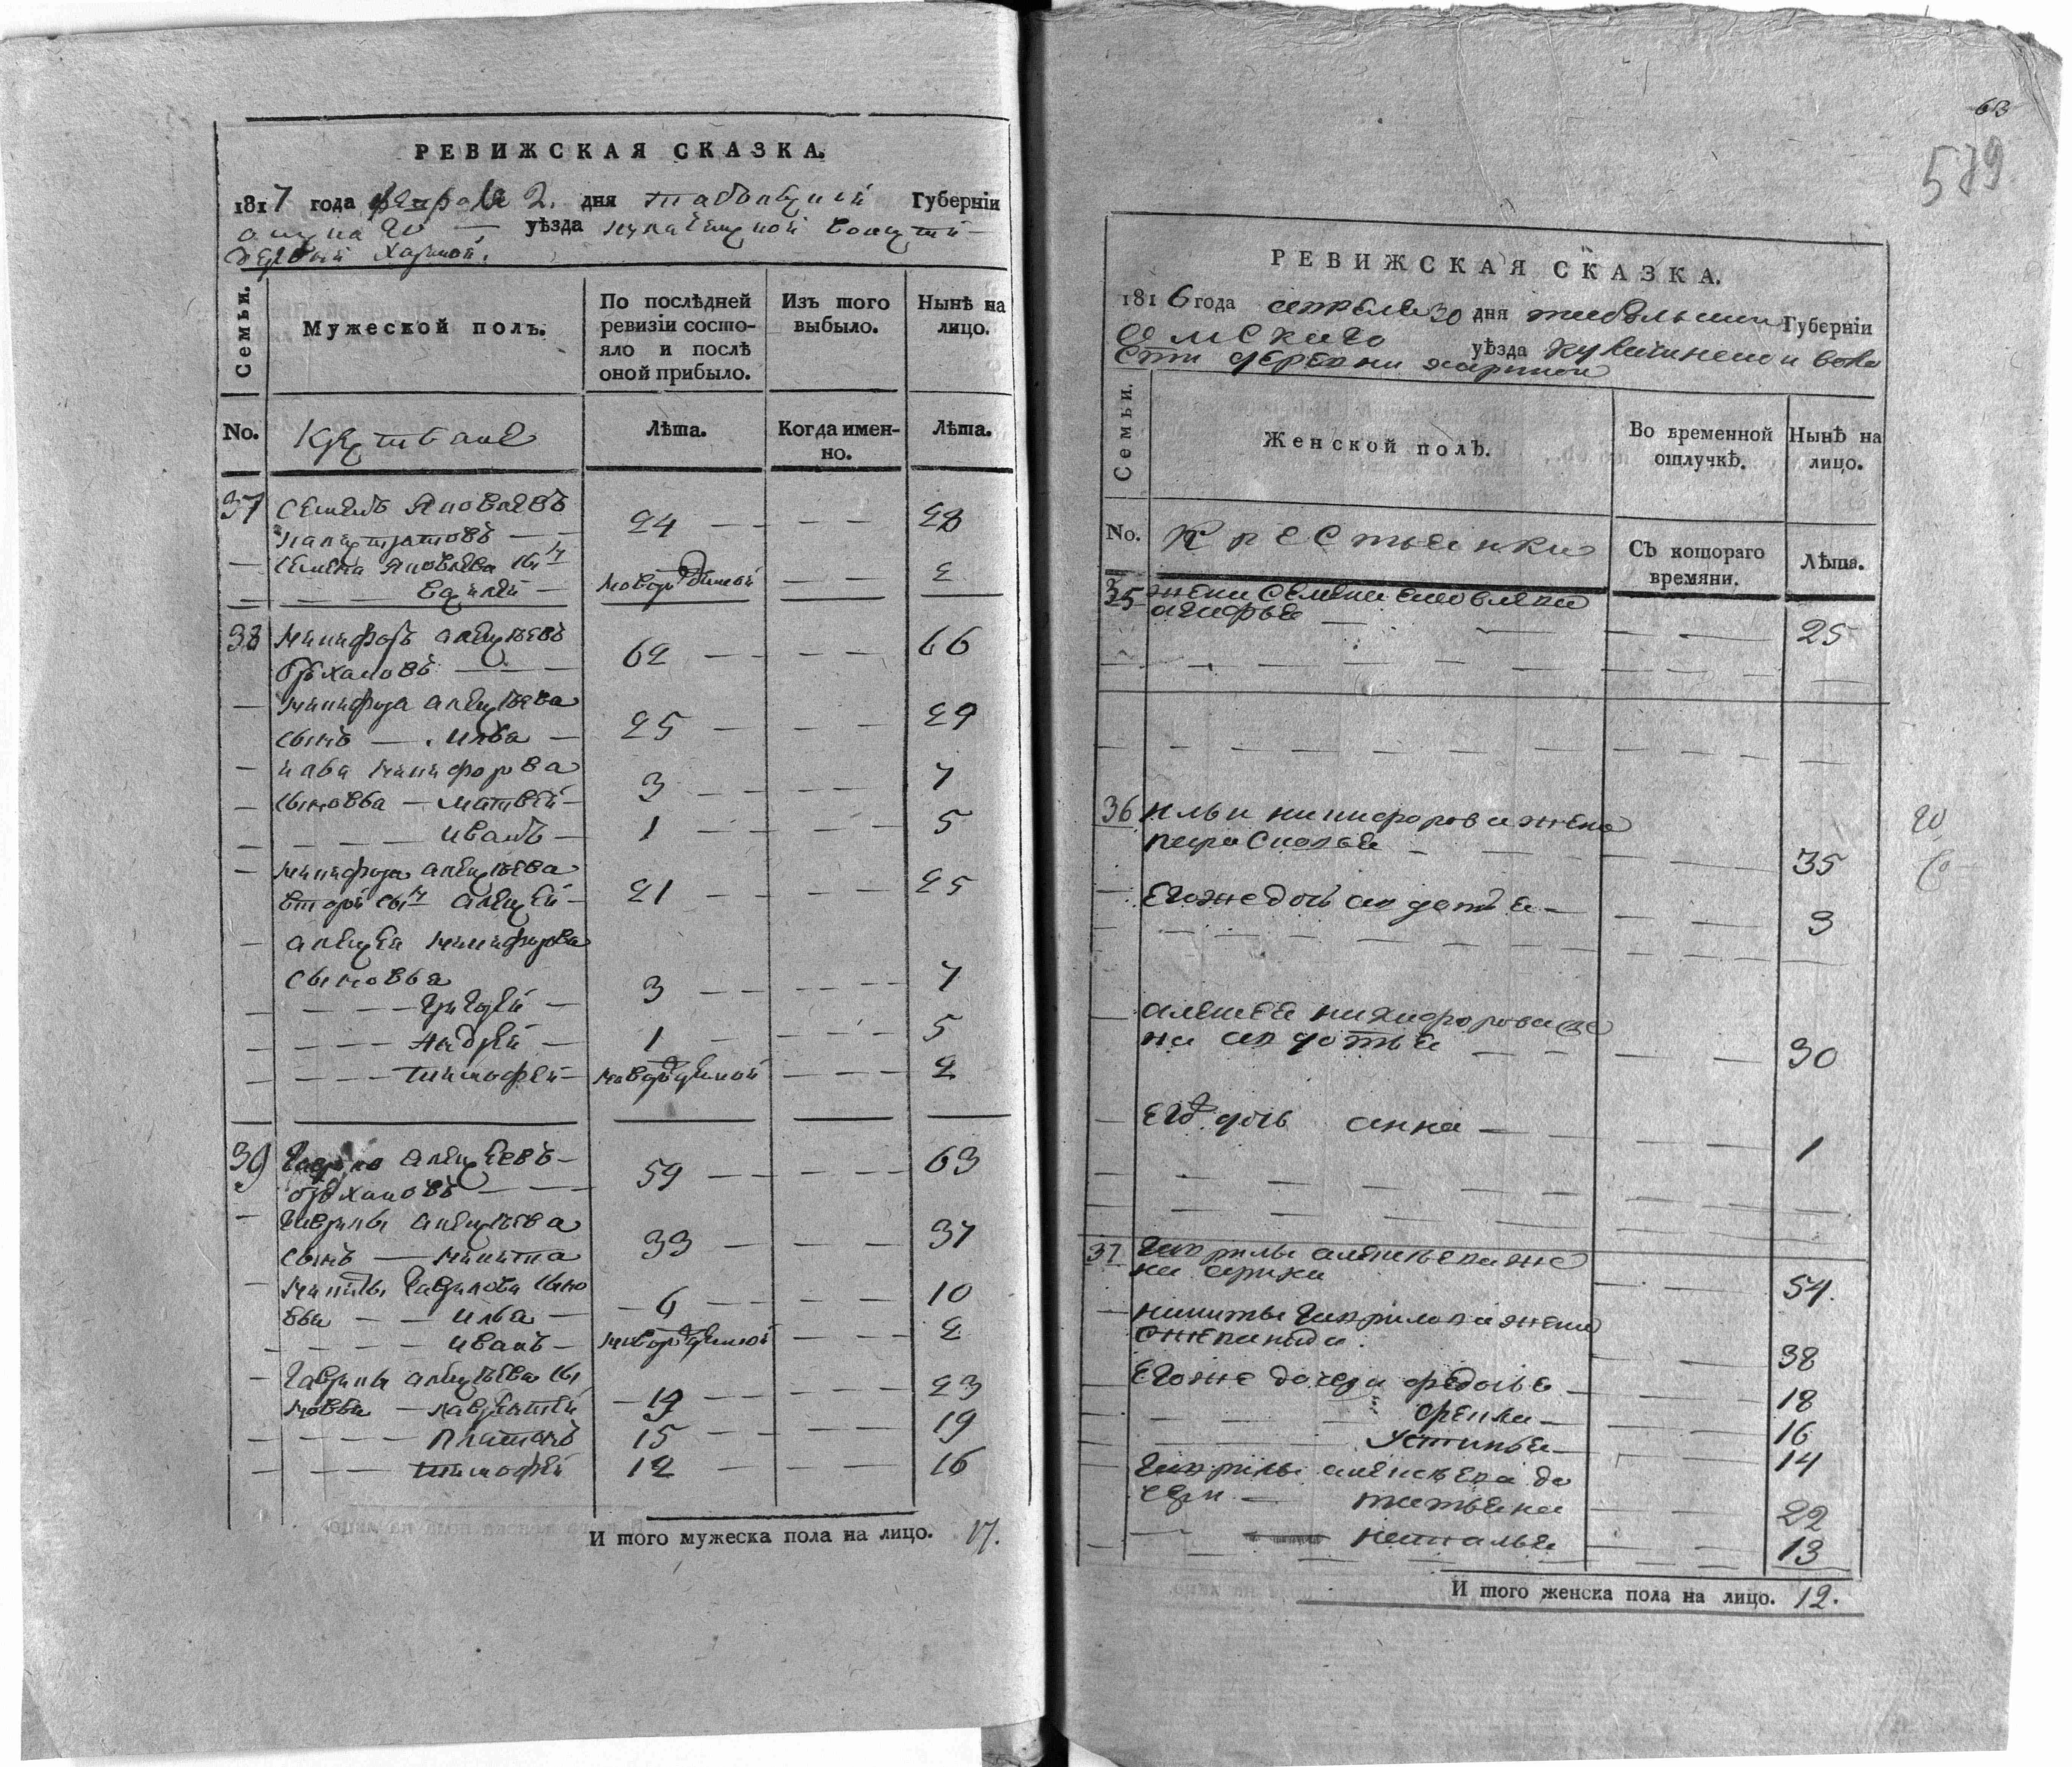 РЕВИЖСКАЯ СКАЗКА.
1817 года февраля 2. дня тобольской Губерніи
омскаго — уѣзда кулачинской волости
деревни Хариной.
Семьи. Мужеской полъ. По послѣдней ревизіи состояло и послѣ оной прибыло. Изъ того выбыло. Нынѣ на лицо.
No. Крестьяне Лѣта. Когда именно. Лѣта.
37 Семенъ Яковлевъ
24 — — — — 28
Семена Яковлева сынъ
новорожденной — — 2
38 Никифоръ алексѣевъ
62 — — — — 66
— Никифора алексѣева
сынъ — Илья — 25 — — — — 29
— Ильи Никифорова
— сыновья — Матвѣй — 3 — — — — 7
— — — Иванъ — 1 — — — — 5
— Никифора алексѣева
второй сынъ алексѣй — 21 — — — — 25
— алексѣя Никифорова
сыновья
— — — — Григорей — 3 — — — — — 7
— — — — Андрей — 1 — — — — 5
— — — — тимофей — новорожденной — — — 2
39 Гаврило алексѣевъ —
59 — — — — 63
— Гаврилы алексѣева
сынъ — Никита 33 — — — — 37
— Никиты Гаврилова сыно
вья — — Илья — 6 — — — — 10
— — — — Иванъ — новорожденной — — — 2
— Гаврилы алексѣева сы
новья — лаврентей — 19 — — — — 23
— — — — Платонъ 15 — — — — 19
— — — тимофей 12 — — — 16
И того мужеска пола на лицо. 17.
63
579
РЕВИЖСКАЯ СКАЗКА.
1816 года апреля 30 дня тобольской Губерніи
омскаго уѣзда кулачинской воло
сти деревни харинои
Семьи. Женской полъ. Во временной отлучкѣ. Нынѣ на лицо.
No. Крестьянки Съ котораго времяни. Лѣта.
35 жена Семена Яковлева
агафья — — — — 25
36 Ильи никифорова жена
парасковья — — — — 35
— Егоже дочь авдотья — — — 3
— алексея никифорова же
на авдотья — — — — 30
— Его дочь анна — — — 1
37 Гаврилы алексѣева же
на ирина — — 54.
— никиты Гаврилова жена
— — 38
Егоже дочери федосья — — — 18
фекла — — — 16
Устинья — — — 14
Гаврилы алексѣева до
чери — татьяна — — 22
— наталья — — 13
И того женска пола на лицо. 12.